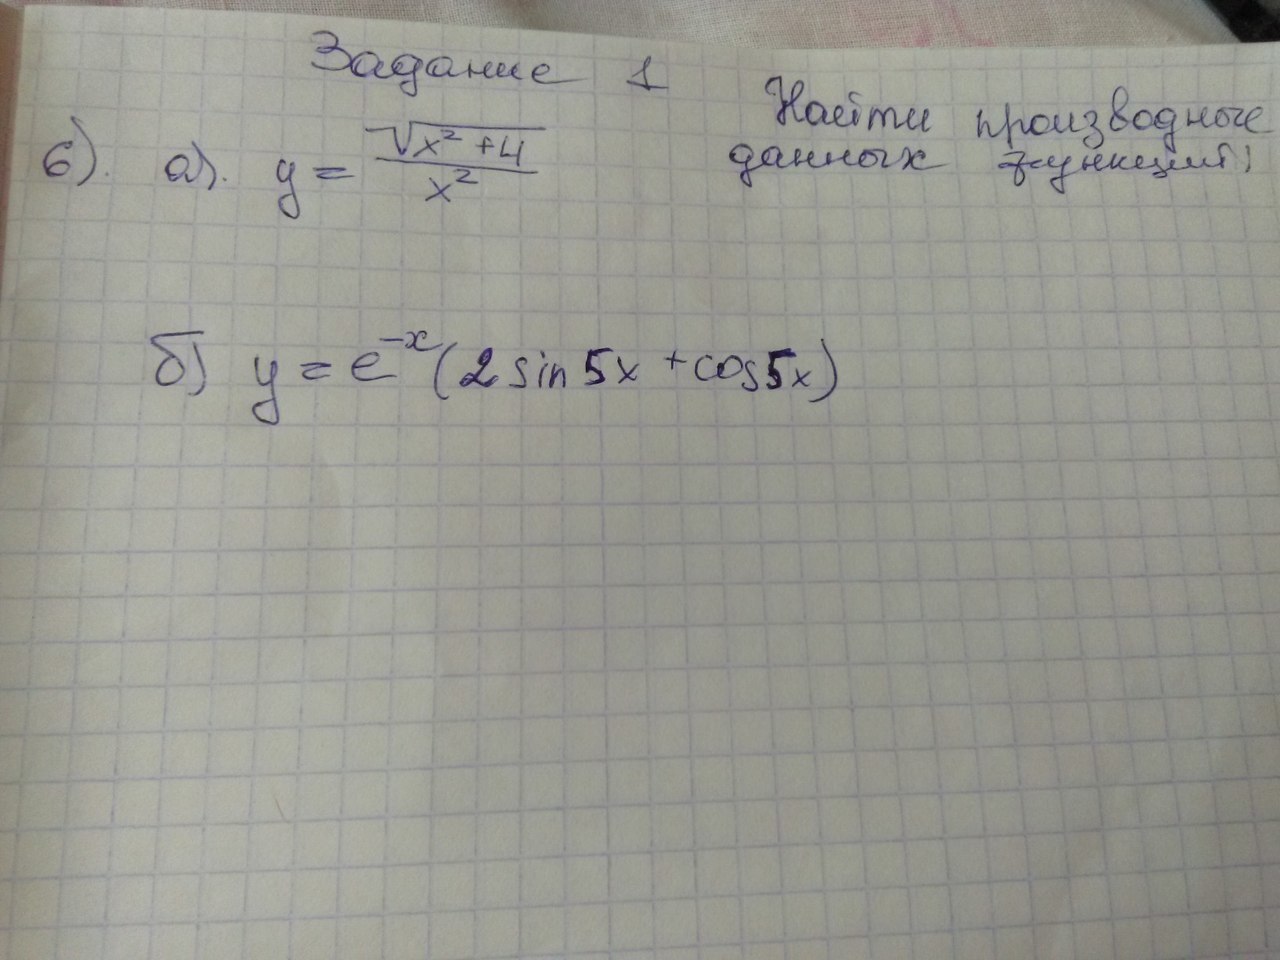 Задание 1
Найти производные
данных функций:
6). а). y = √(x² + 4) / x²
б) y = e⁻ˣ(2 sin 5x + cos 5x)